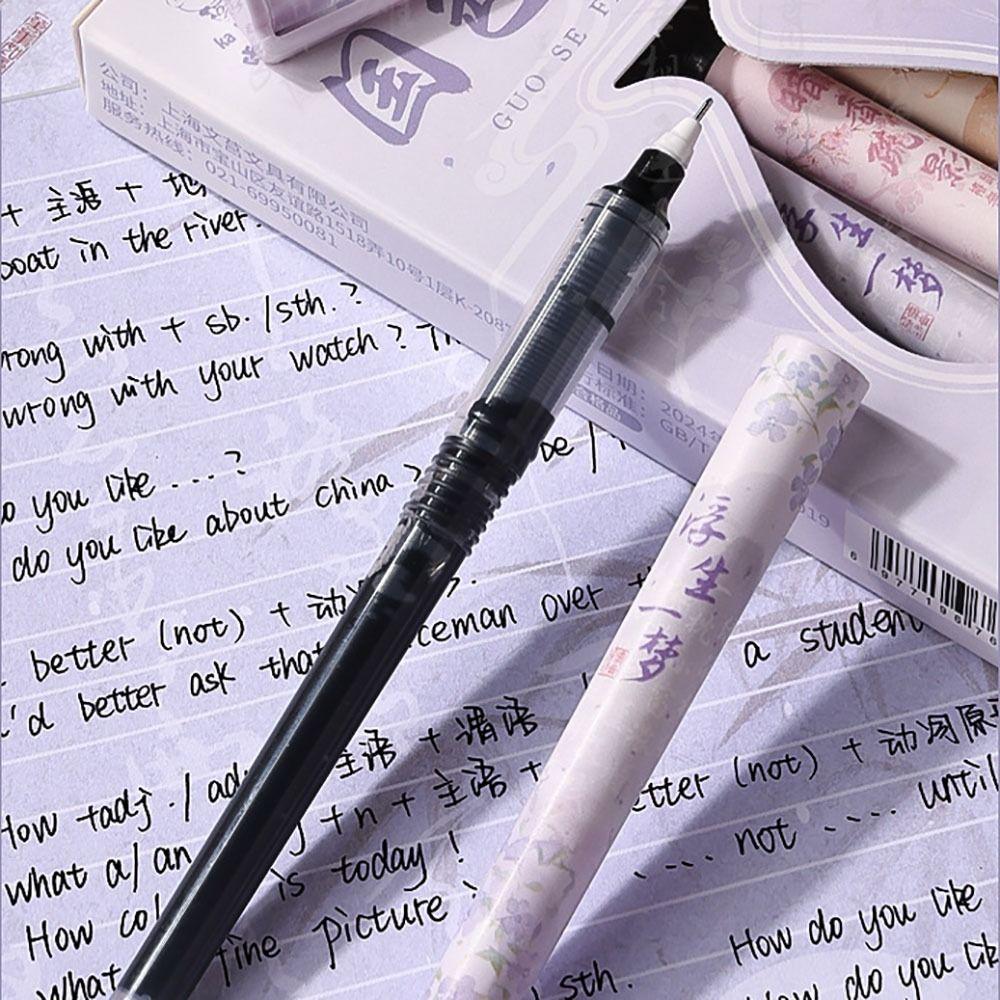 国色
GUO SE
公司：上海文莒文具有限公司
地址：上海市宝山区友谊路1518弄10号1层K-208
服务热线：021-69950081
暗香疏影
浮生一梦
日期：2024年
标准：GB/T
合格品
浮生一梦
6 971719 676
+ 主语 +
boat in the river.
wrong with + sb./sth.?
wrong with your watch?
do you like ...?
do you like about china
better (not) + 动词
I'd better ask that policeman over
a student
How +adj./adv + 主语 + 谓语
better (not) + 动词原
what a/an adj +n + 主语 +
not .... until
How cold is today!
What fine picture
How do you like
sth.
How do you like